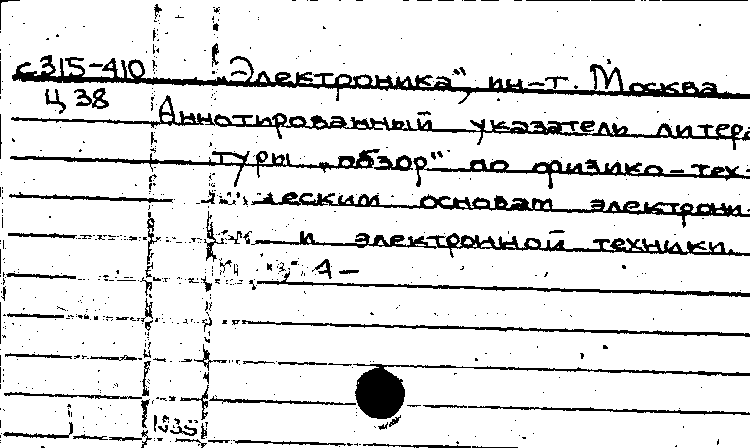 с315-410 „Электроника", ин-т. Москва
Ц 38 Аннотированный указатель литера
туры „обзор" по физико-тех-
ческим основам электрони-
и электронной техники.
4-